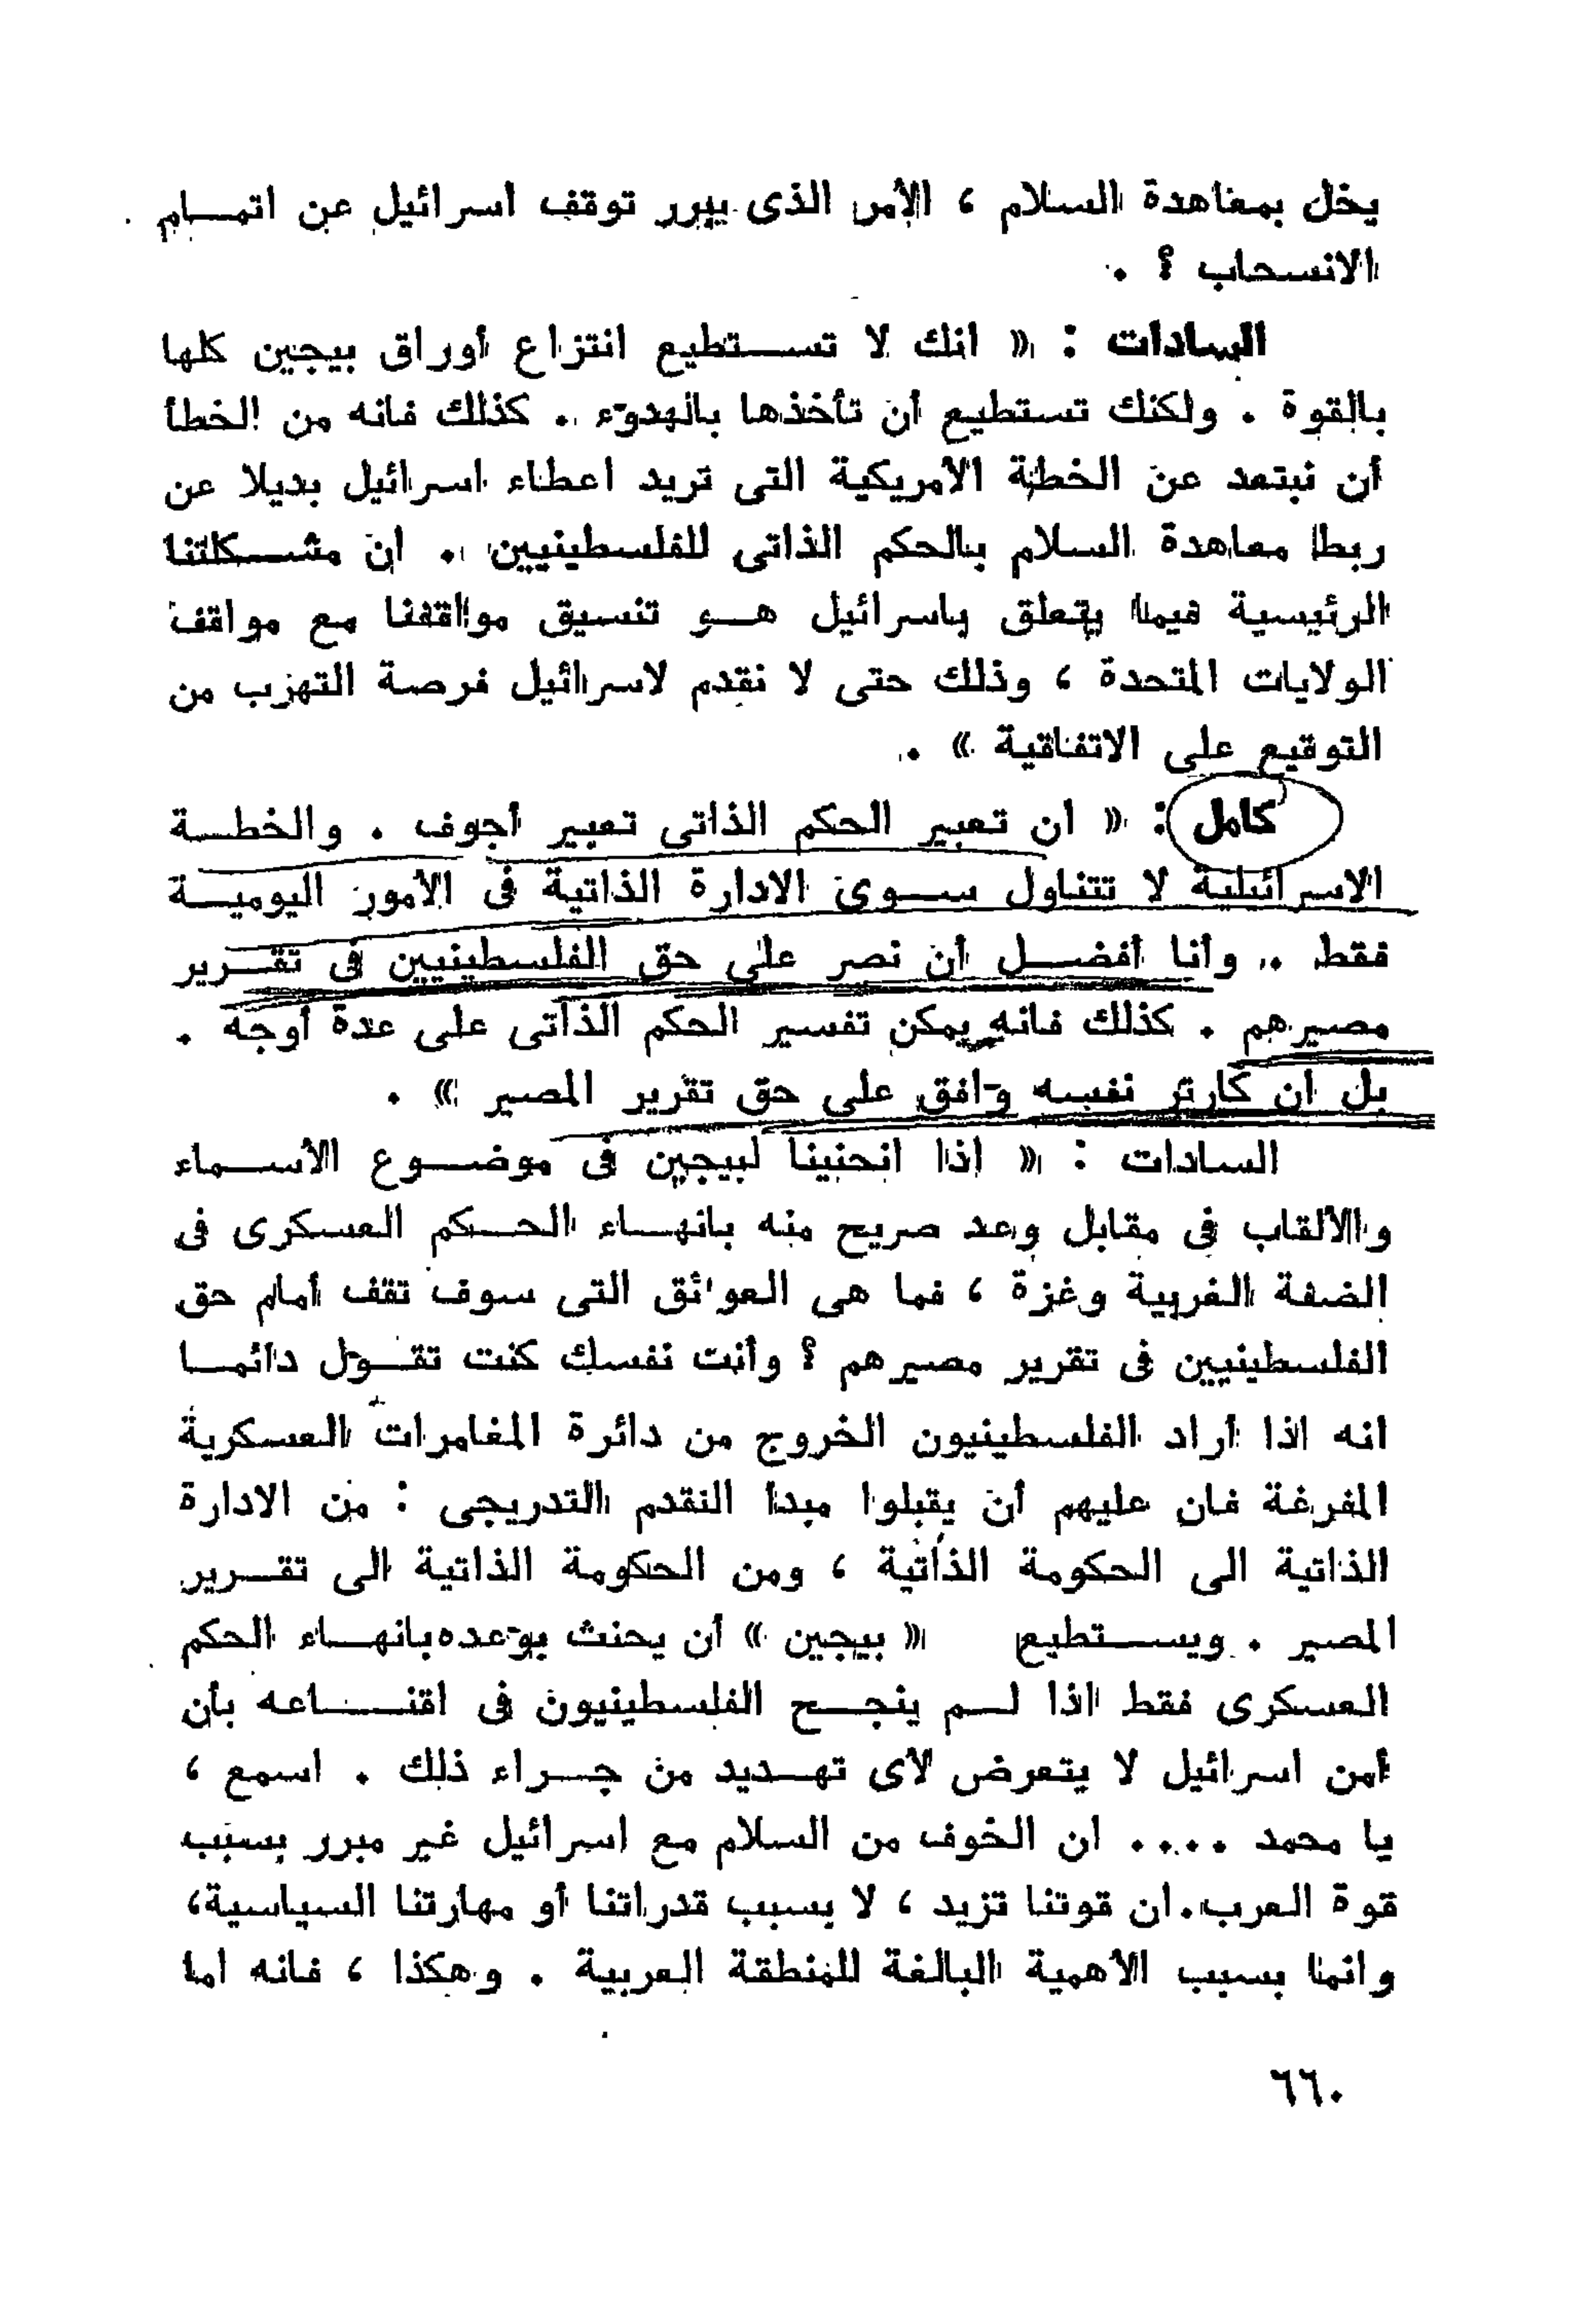 يخل بمعاهدة السلام ، الأمر الذى يبرر توقف اسرائيل عن اتمــام
الانسحاب ؟ .
السادات : « انك لا تســتطيع انتزاع أوراق بيجين كلها
بالقوة . ولكنك تستطيع أن تأخذها بالهدوء .. كذلك فانه من الخطأ
أن نبتعد عن الخطة الأمريكية التى تريد اعطاء اسرائيل بديلا عن
ربط معاهدة السلام بالحكم الذاتى للفلسطينيين .. ان مشــكلتنا
الرئيسية فيما يتعلق باسرائيل هــو تنسيق مواقفنا مع مواقف
الولايات المتحدة ، وذلك حتى لا نقدم لاسرائيل فرصة التهرب من
التوقيع على الاتفاقية » .
كامل : « ان تعبير الحكم الذاتى تعبير أجوف . والخطــة
الاسرائيلية لا تتناول ســوى الادارة الذاتية فى الأمور اليوميــة
فقط .. وأنا أفضــل أن نصر على حق الفلسطينيين فى تقــرير
مصيرهم . كذلك فانه يمكن تفسير الحكم الذاتى على عدة أوجه .
بل ان كارتر نفسه وافق على حق تقرير المصير » .
السادات : « اذا انحنينا لبيجين فى موضــوع الأســماء
والألقاب فى مقابل وعد صريح منه بانهــاء الحــكم العسكرى فى
الضفة الغربية وغزة ، فما هى العوائق التى سوف تقف أمام حق
الفلسطينيين فى تقرير مصيرهم ؟ وأنت نفسك كنت تقــول دائمــا
انه اذا أراد الفلسطينيون الخروج من دائرة المغامرات العسكرية
المفرغة فان عليهم أن يقبلوا مبدا التقدم التدريجى : من الادارة
الذاتية الى الحكومة الذاتية ، ومن الحكومة الذاتية الى تقــرير
المصير . ويســتطيع « بيجين » أن يحنث بوعده بانهــاء الحكم
العسكرى فقط اذا لــم ينجــح الفلسطينيون فى اقنــاعه بأن
أمن اسرائيل لا يتعرض لأى تهــديد من جــراء ذلك . اسمع ،
يا محمد .... ان الخوف من السلام مع اسرائيل غير مبرر بسبب
قوة العرب . ان قوتنا تزيد ، لا بسبب قدراتنا أو مهارتنا السياسية ،
وانما بسبب الأهمية البالغة للمنطقة العربية . وهكذا ، فانه اما
٦٦٠